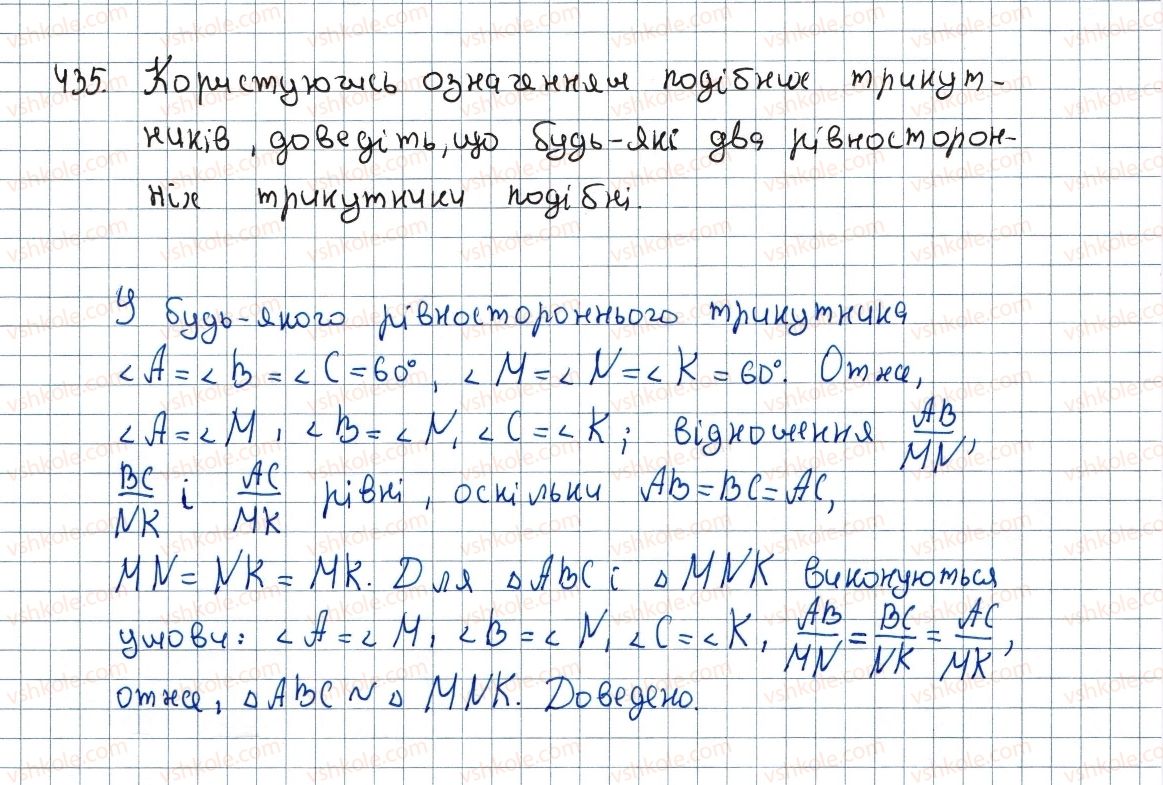 435. Користуючись означенням подібних трикут-
ників, доведіть, що будь-які два рівносторон-
ніх трикутники подібні.
У будь-якого рівностороннього трикутника
∠A = ∠B = ∠C = 60°, ∠M = ∠N = ∠K = 60°. Отже,
∠A = ∠M, ∠B = ∠N, ∠C = ∠K; відношення AB/MN,
BC/NK і AC/MK рівні, оскільки AB = BC = AC,
MN = NK = MK. Для △ABC і △MNK виконуються
умови: ∠A = ∠M, ∠B = ∠N, ∠C = ∠K, AB/MN = BC/NK = AC/MK,
отже, △ABC ~ △MNK. Доведено.